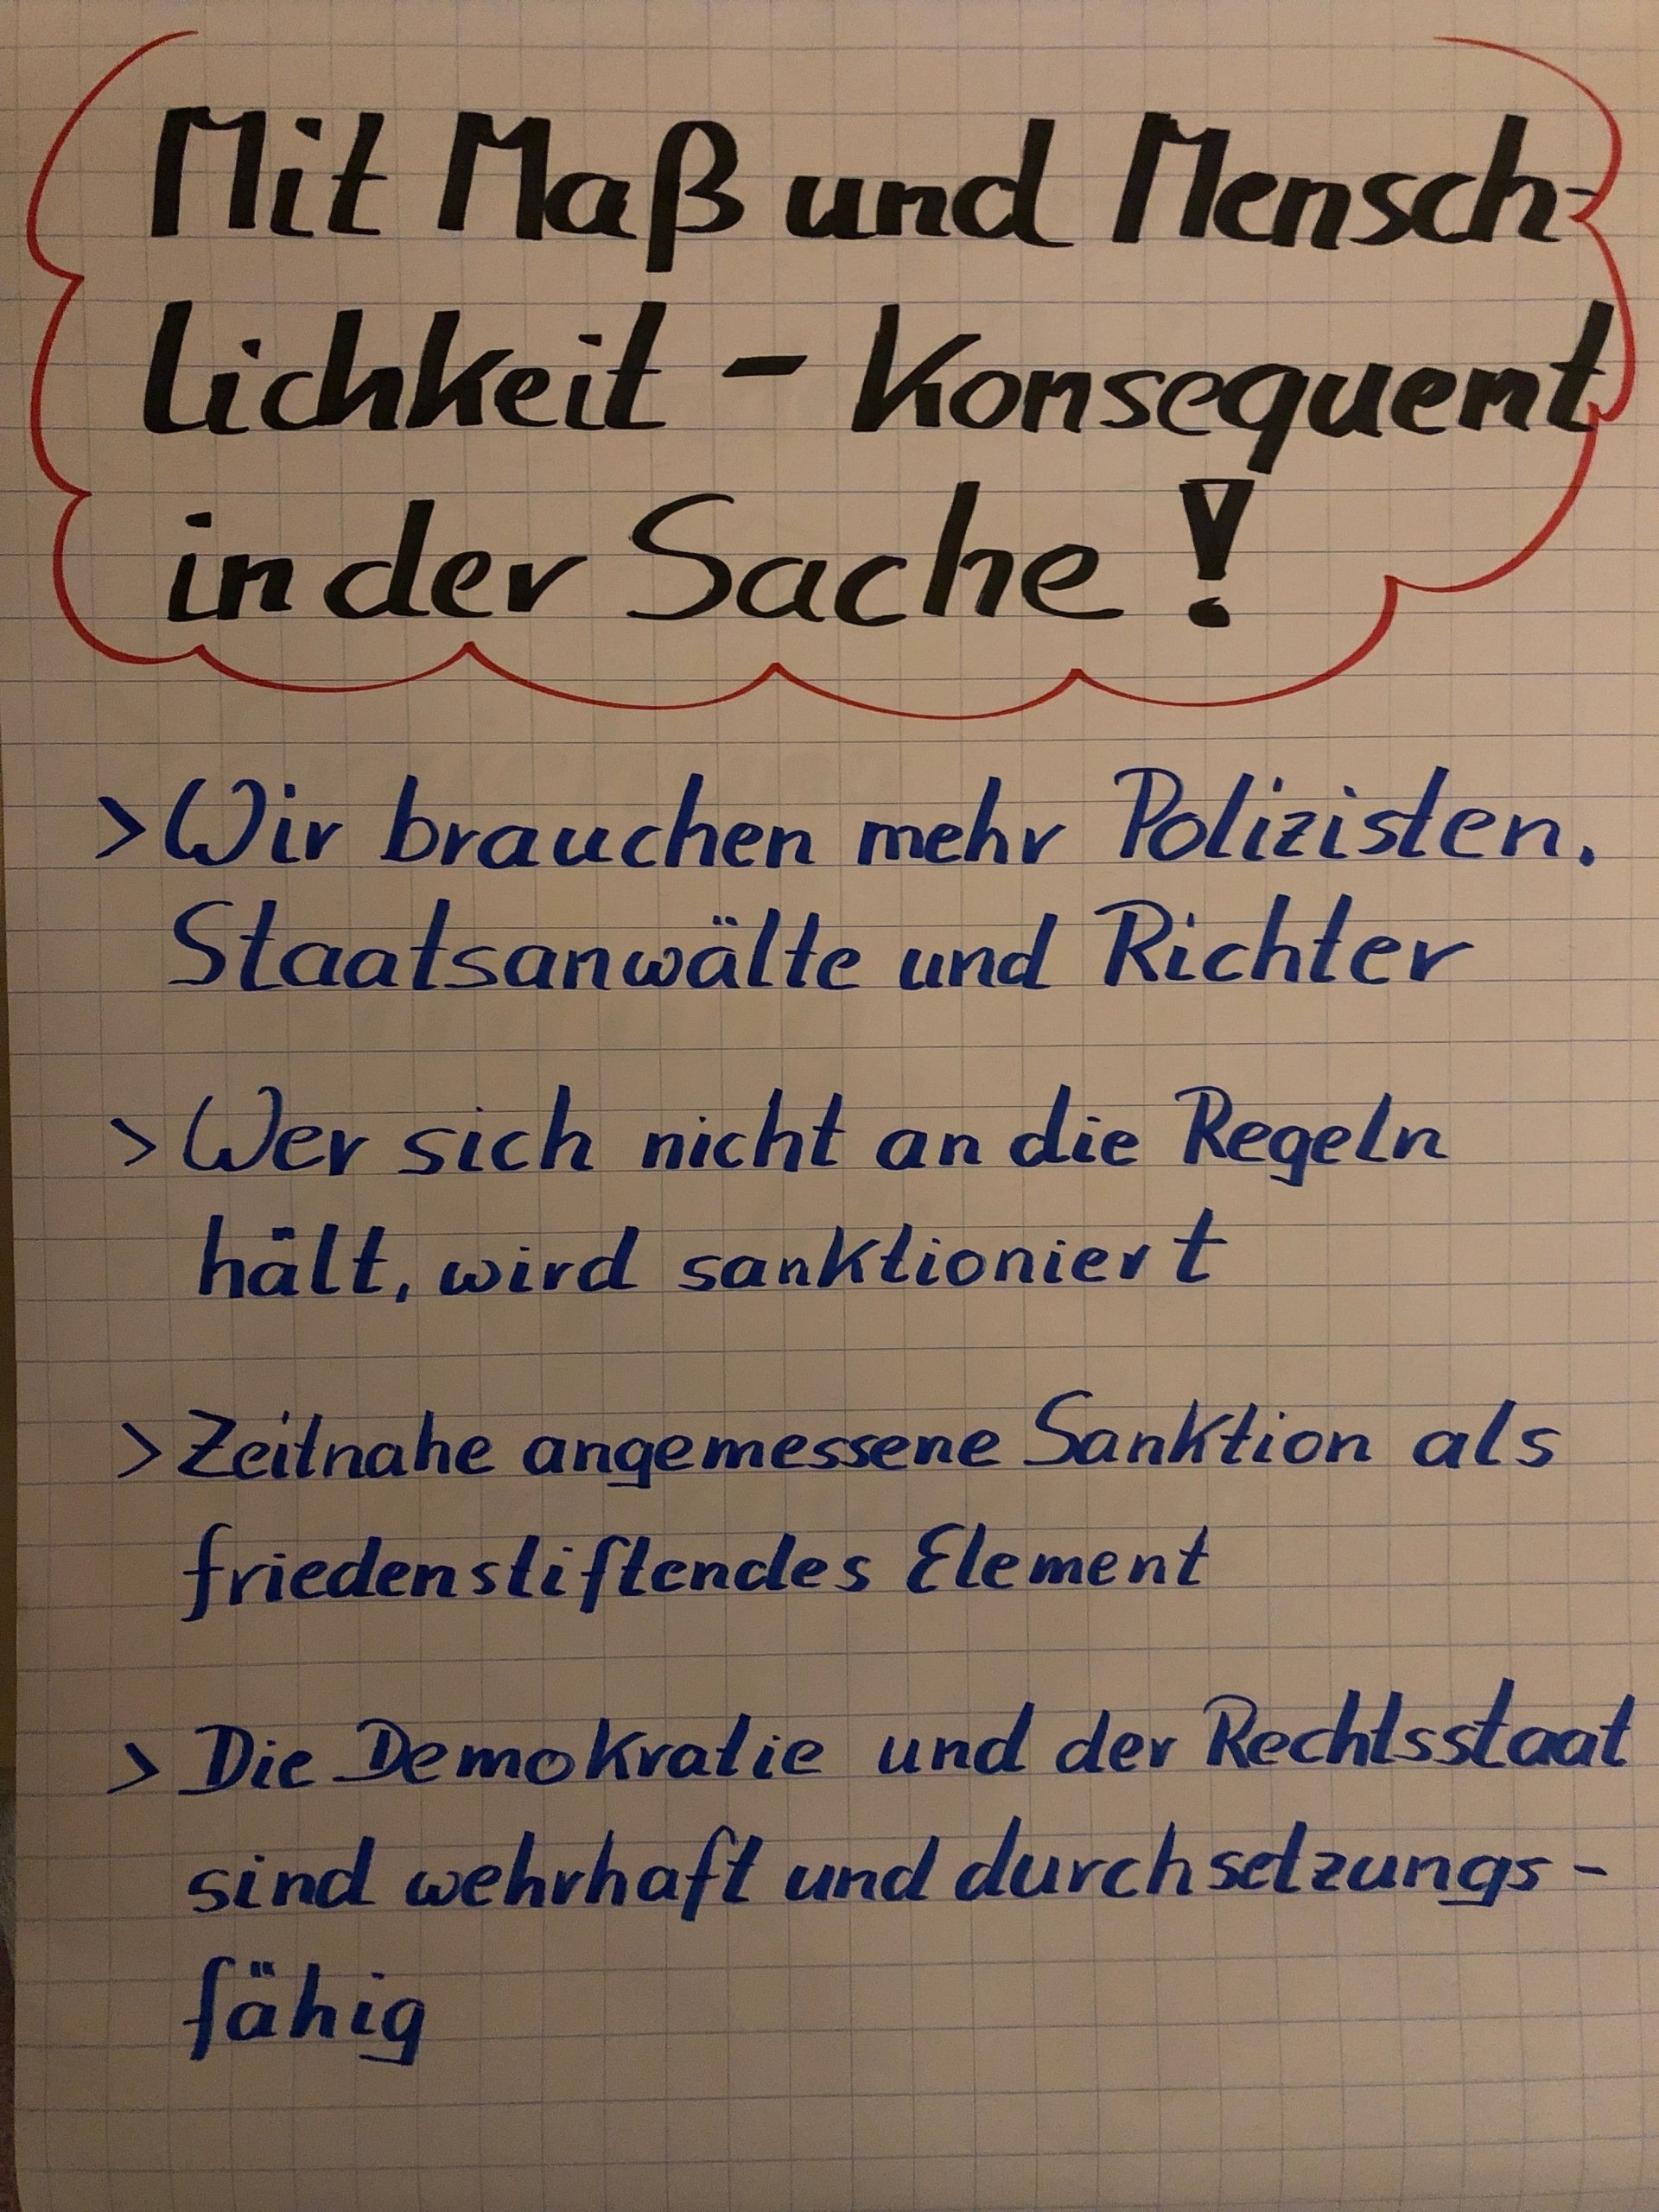 Mit Maß und Mensch-
lichkeit - Konsequent
in der Sache!
> Wir brauchen mehr Polizisten.
Staatsanwälte und Richter
> Wer sich nicht an die Regeln
hält, wird sanktioniert
> Zeitnahe angemessene Sanktion als
friedenstiftendes Element
> Die Demokratie und der Rechtsstaat
sind wehrhaft und durchsetzungs-
fähig